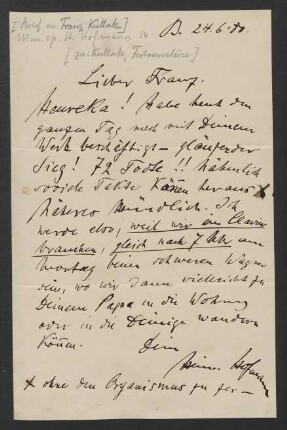 [Brief an Franz Kullak]
Mus. ep. H. Hofmann 14
[zu: Kullak, Festouvertüre]
B. 24.6.80.
Lieber Franz.
Heureka! Habe heut den
ganzen Tag noch mit Deinem
Werk beschäftigt – glänzender
Sieg! 72 Todte!! Nähmlich
soviele Takte können heraus x
Näheres mündlich. Ich
werde also, weil wir ein Clavier
brauchen, gleich nach 7 Uhr am
Montag beim schweren Wagner
sein, wo wir dann vielleicht zu
Deinem Papa in die Wohnung
oder in die Deinige wandern
können.
Dein
Heinr. Hofmann
x ohne den Organismus zu zer–